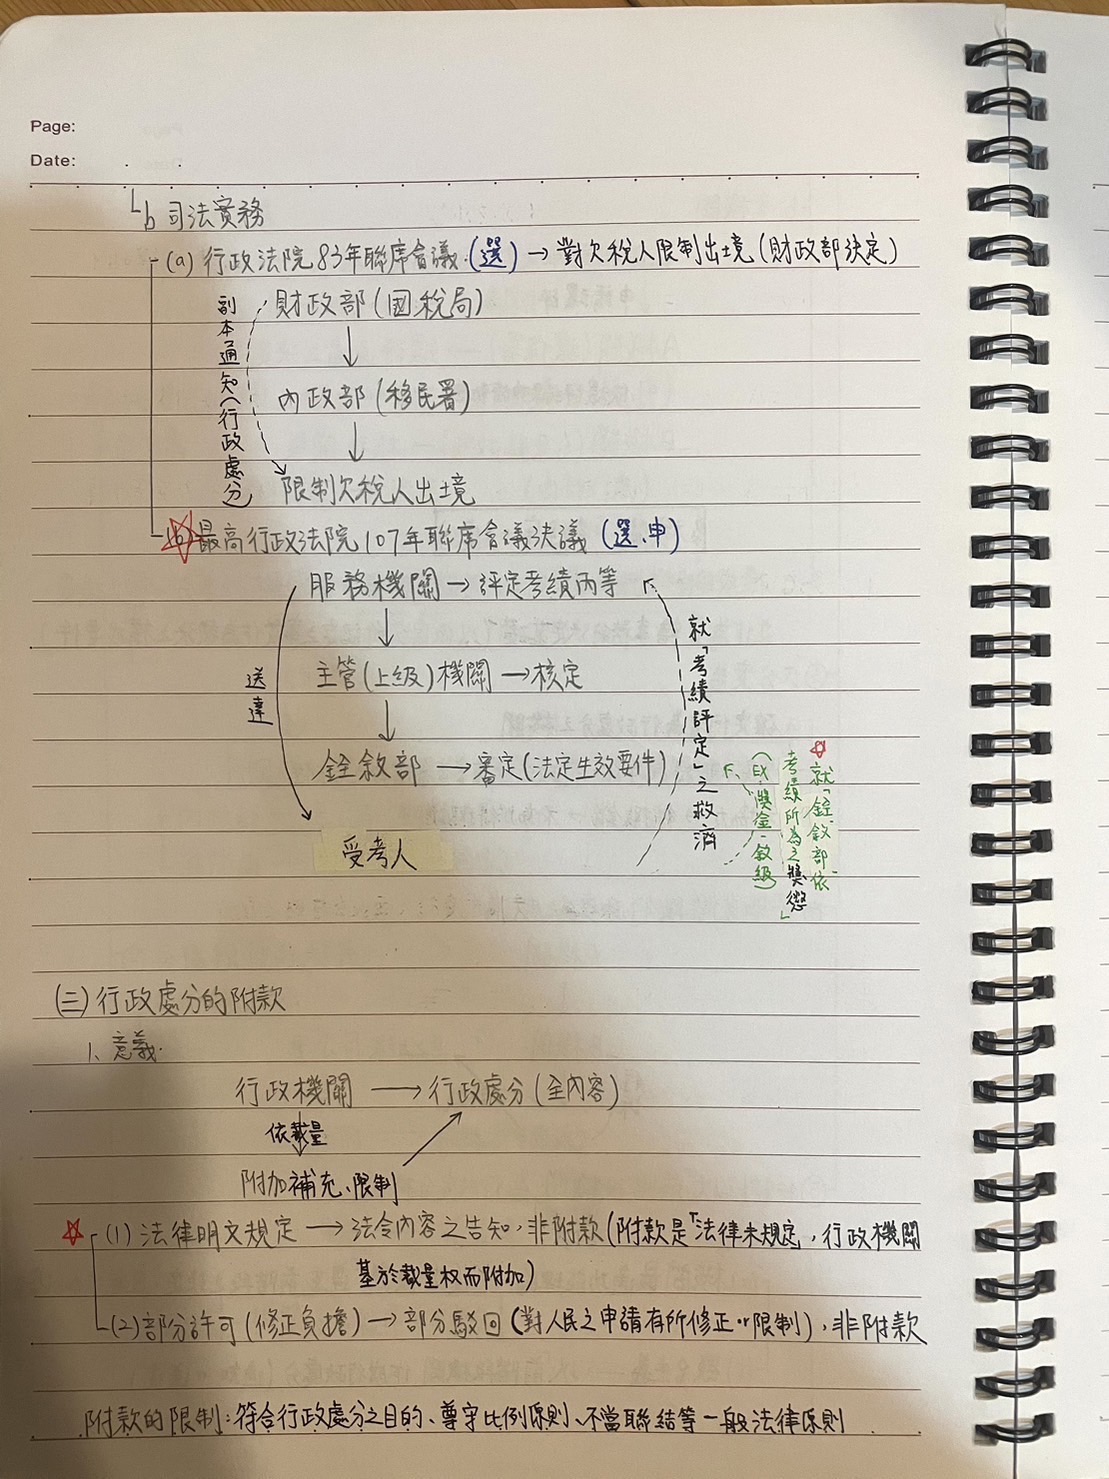 Page:
Date: . .
b 司法實務
(a) 行政法院83年聯席會議.(選) → 對欠稅人限制出境(財政部決定)
財政部(國稅局)
↓
內政部(移民署)
↓
限制欠稅人出境
副本通知(行政處分)
(b) 最高行政法院107年聯席會議決議 (選、申)
服務機關 → 評定考績丙等
↓
主管(上級)機關 → 核定
↓
銓敘部 → 審定(法定生效要件)
受考人
送達
就「考績評定」之救濟
☆就「銓敘部依
考績所為之獎懲」
(EX.獎金、敘級)
(三) 行政處分的附款
1、意義.
行政機關 → 行政處分(全內容)
依裁量
附加補充、限制
☆ (1) 法律明文規定 → 法令內容之告知,非附款(附款是「法律未規定」,行政機關
基於裁量權而附加)
(2) 部分許可(修正負擔) → 部分駁回(對人民之申請有所修正or限制),非附款
附款的限制:符合行政處分之目的、遵守比例原則、不當聯結等一般法律原則